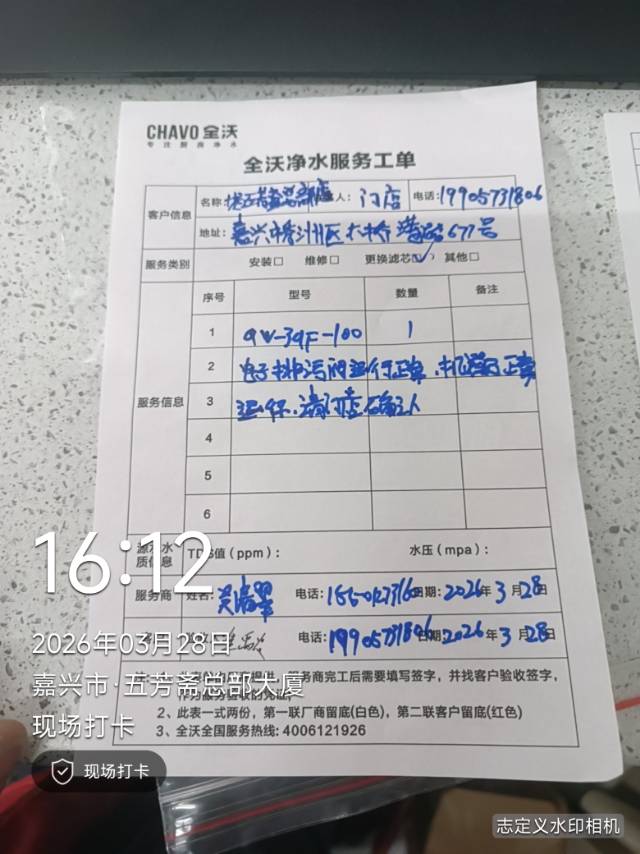 CHAVO 全沃
专注厨房净水
全沃净水服务工单
客户信息
名称: 总部店 人: 门店 电话: 19905731806
地址: 嘉兴市秀洲区 677号
服务类别 安装□ 维修□ 更换滤芯☑ 其他□
服务信息
序号 型号 数量 备注
1 QW-39F-100 1
2 电子排污阀运行正常.机器正常
3 运作.请门店确认
4
5
6
源水水质信息 TDS值(ppm): 水压(mpa):
服务商 姓名: 电话: 日期: 2026年3月28日
电话: 19905731806 2026年3月28日
商完工后需要填写签字,并找客户验收签字,
2、此表一式两份,第一联厂商留底(白色),第二联客户留底(红色)
3、全沃全国服务热线: 4006121926
16:12
2026年03月28日
嘉兴市·五芳斋总部大厦
现场打卡
现场打卡
志定义水印相机